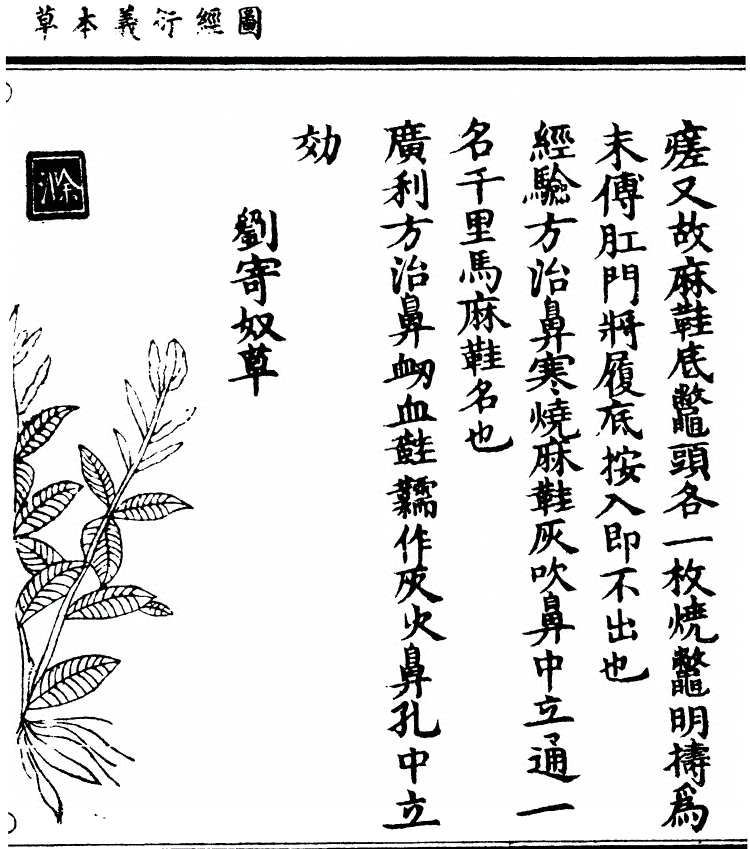 圖經衍義本草
瘥又故麻鞋底鼈頭各一枚燒鼈明擣爲
末傅肛門將履底按入即不出也
經驗方治鼻寒燒麻鞋灰吹鼻中立通一
名千里馬麻鞋名也
廣利方治鼻衂血鞋作灰火鼻孔中立
効
劉寄奴草
滁